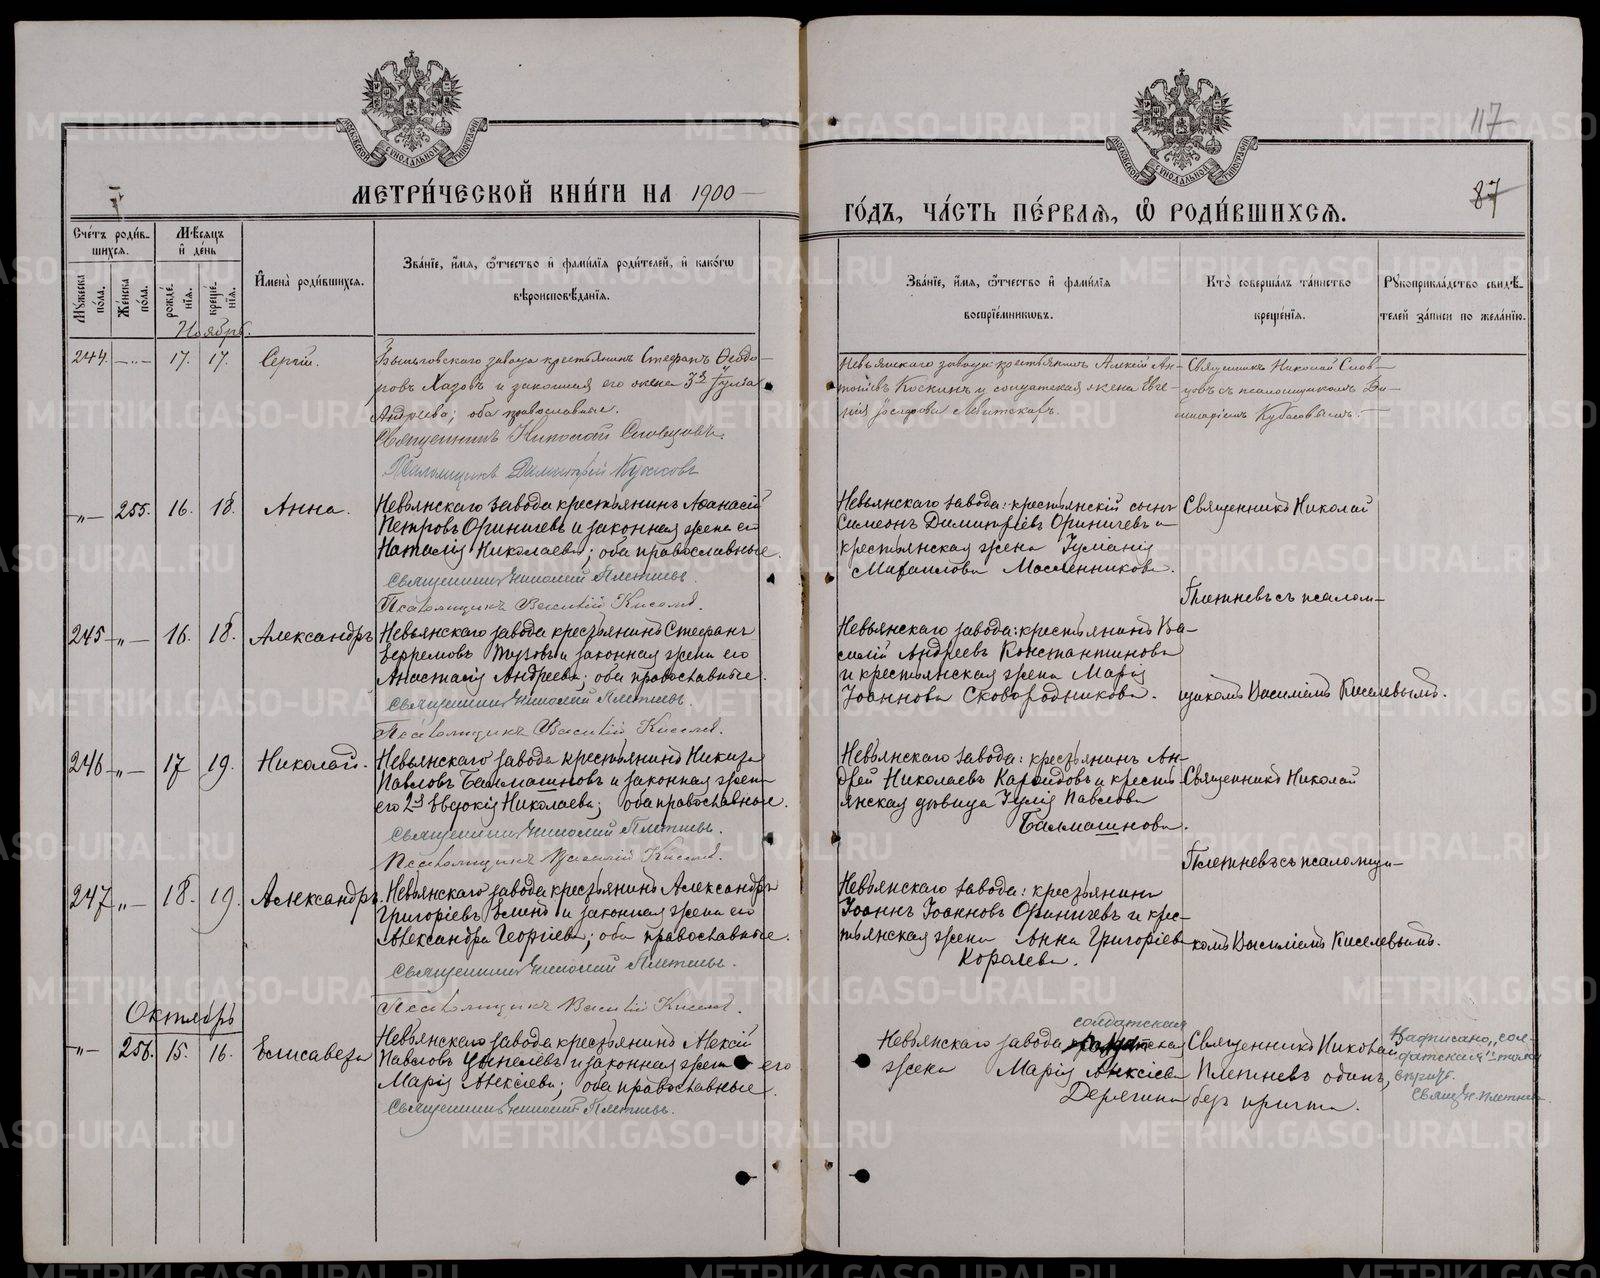 117
87
МЕТРИ́ЧЕСКОЙ КНИ́ГИ НА 1900 ГО́ДЪ, ЧА́СТЬ ПЕ́РВАѦ, Ѽ РОДИ́ВШИХСѦ.
Сче́тъ роди́в-
шихсѧ.
Мѹ́жеска по́ла.
Же́нска по́ла.
Мѣ́сѧцъ и де́нь
рожде́нїѧ.
креще́нїѧ.
И҆мена̀ роди́вшихсѧ.
Зва́нїе, и҆́мѧ, ѻ҆́тчество и҆ фами́лїѧ роди́телей, и҆ како́гѡ
вѣроисповѣ́данїѧ.
Зва́нїе, и҆́мѧ, ѻ҆́тчество и҆ фами́лїѧ
воспрїе́мникѡвъ.
Кто̀ соверша́лъ та́инство
креще́нїѧ.
Рѹкоприкла́дство свидѣ́-
телей за́писи по жела́нїю.
Ноябрь.
244. 17. 17. Сергій.
завода крестьянинъ Стефанъ Ѳеодо-
ровъ Хазовъ и законная его жена
Андреева; оба православные.
Священникъ Николай Словцовъ.
Псаломщикъ Димитрій
Невьянскаго завода крестьянинъ Алексій Ан-
и солдатская жена Евге-
нія
Священникъ Николай Слов-
цовъ съ псаломщикомъ Ди-
митріемъ
" 255. 16. 18. Анна.
Невьянскаго завода крестьянинъ Аѳанасій
Петровъ Ѳриничевъ и законная жена его
Наталія Николаева; оба православные.
Священникъ Николай Плетневъ.
Псаломщикъ Василій Киселевъ.
Невьянскаго завода: крестьянскій сынъ
Симеонъ Димитріевъ Ѳриничевъ и
крестьянская жена Іуліанія
Михаилова Масленникова.
Священникъ Николай
Плетневъ съ псалом-
245 " 16. 18. Александръ
Невьянскаго завода крестьянинъ Стефанъ
Ефремовъ и законная жена его
Анастасія Андреева; оба православные.
Священникъ Николай Плетневъ.
Псаломщикъ Василій Киселевъ.
Невьянскаго завода: крестьянинъ Ва-
силій Андреевъ Константиновъ
и крестьянская жена Марія
Іоаннова Сковородникова.
щикомъ Василіемъ Киселевымъ.
246 " 17 19. Николай.
Невьянскаго завода крестьянинъ Никита
Павловъ Балмашновъ и законная жена
его 2я Евдокія Николаева; оба православные.
Священникъ Николай Плетневъ.
Псаломщикъ Василій Киселевъ.
Невьянскаго завода: крестьянинъ Ан-
дрей Николаевъ и кресть-
янская дѣвица Іулія Павлова
Балмашнова.
Священникъ Николай
Плетневъ съ псаломщи-
247 " 18. 19. Александръ.
Невьянскаго завода крестьянинъ Александръ
Григоріевъ и законная жена его
Александра Георгіева; оба православные.
Священникъ Николай Плетневъ.
Псаломщикъ Василій Киселевъ.
Невьянскаго завода: крестьянинъ
Іоаннъ Іоанновъ Ѳриничевъ и крес-
тьянская жена Анна Григоріева
Королева.
комъ Василіемъ Киселевымъ.
Октябрь
" 256. 15. 16. Елисавета
Невьянскаго завода крестьянинъ Алексій
Павловъ и законная жена его
Марія Алексіева; оба православные.
Священникъ Николай Плетневъ.
солдатская
Невьянскаго завода
жена Марія Алексіева
Дерягина
Священникъ Николай
Плетневъ одинъ,
безъ причта.
Надписано „сол-
датская"
вѣрить.
Свящ. Н. Плетневъ.
METRIKI.GASO-URAL.RU